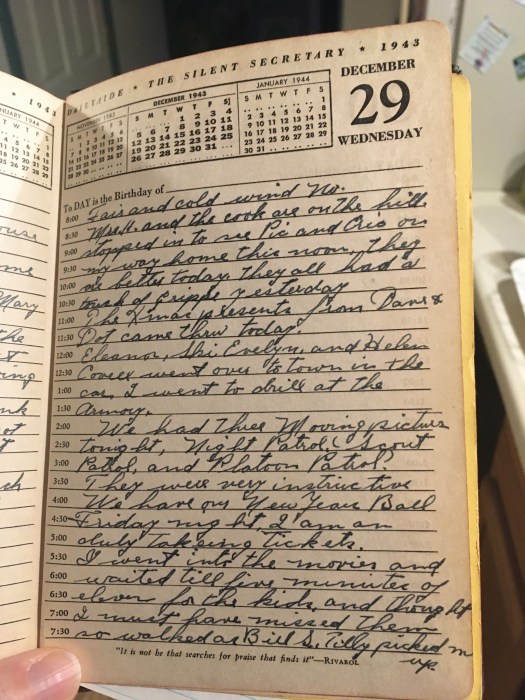 1943
DAILYAIDE ★ THE SILENT SECRETARY ★ 1943
NOVEMBER 1943
DECEMBER 1943
S M T W T F S
1 2 3 4
5 6 7 8 9 10 11
12 13 14 15 16 17 18
19 20 21 22 23 24 25
26 27 28 29 30 31
JANUARY 1944
S M T W T F S
1
2 3 4 5 6 7 8
9 10 11 12 13 14 15
16 17 18 19 20 21 22
23 24 25 26 27 28 29
30 31
DECEMBER
29
WEDNESDAY
To DAY is the Birthday of
8:00 Fair and cold wind No.
8:30 Mrs. H. and the cook are on the hill
9:00 stopped in to see Pic and Cris on
9:30 my way home this noon, they
10:00 are better today. they all had a
10:30 touch of grippe yesterday
11:00 The Xmas presents from Dave &
11:30 Dot came thru today.
12:00 Eleanor, Ski Evelyn, and Helen
12:30 Covell went over to town in the
1:00 car, I went to drill at the
1:30 armory.
2:00 We had three Moving pictures
2:30 tonight, Night Patrol, Scout
3:00 Patrol, and Platoon Patrol.
3:30 They were very instructive
4:00 We have our New Years Ball
4:30 Friday night I am on
5:00 duty takeing Tickets.
5:30 I went into the movies and
6:00 waited till five minutes of
6:30 eleven for the kids, and thought
7:00 I must have missed them
7:30 so walked as Bill S. Tilly picked m
up.
"It is not he that searches for praise that finds it"—RIVAROL